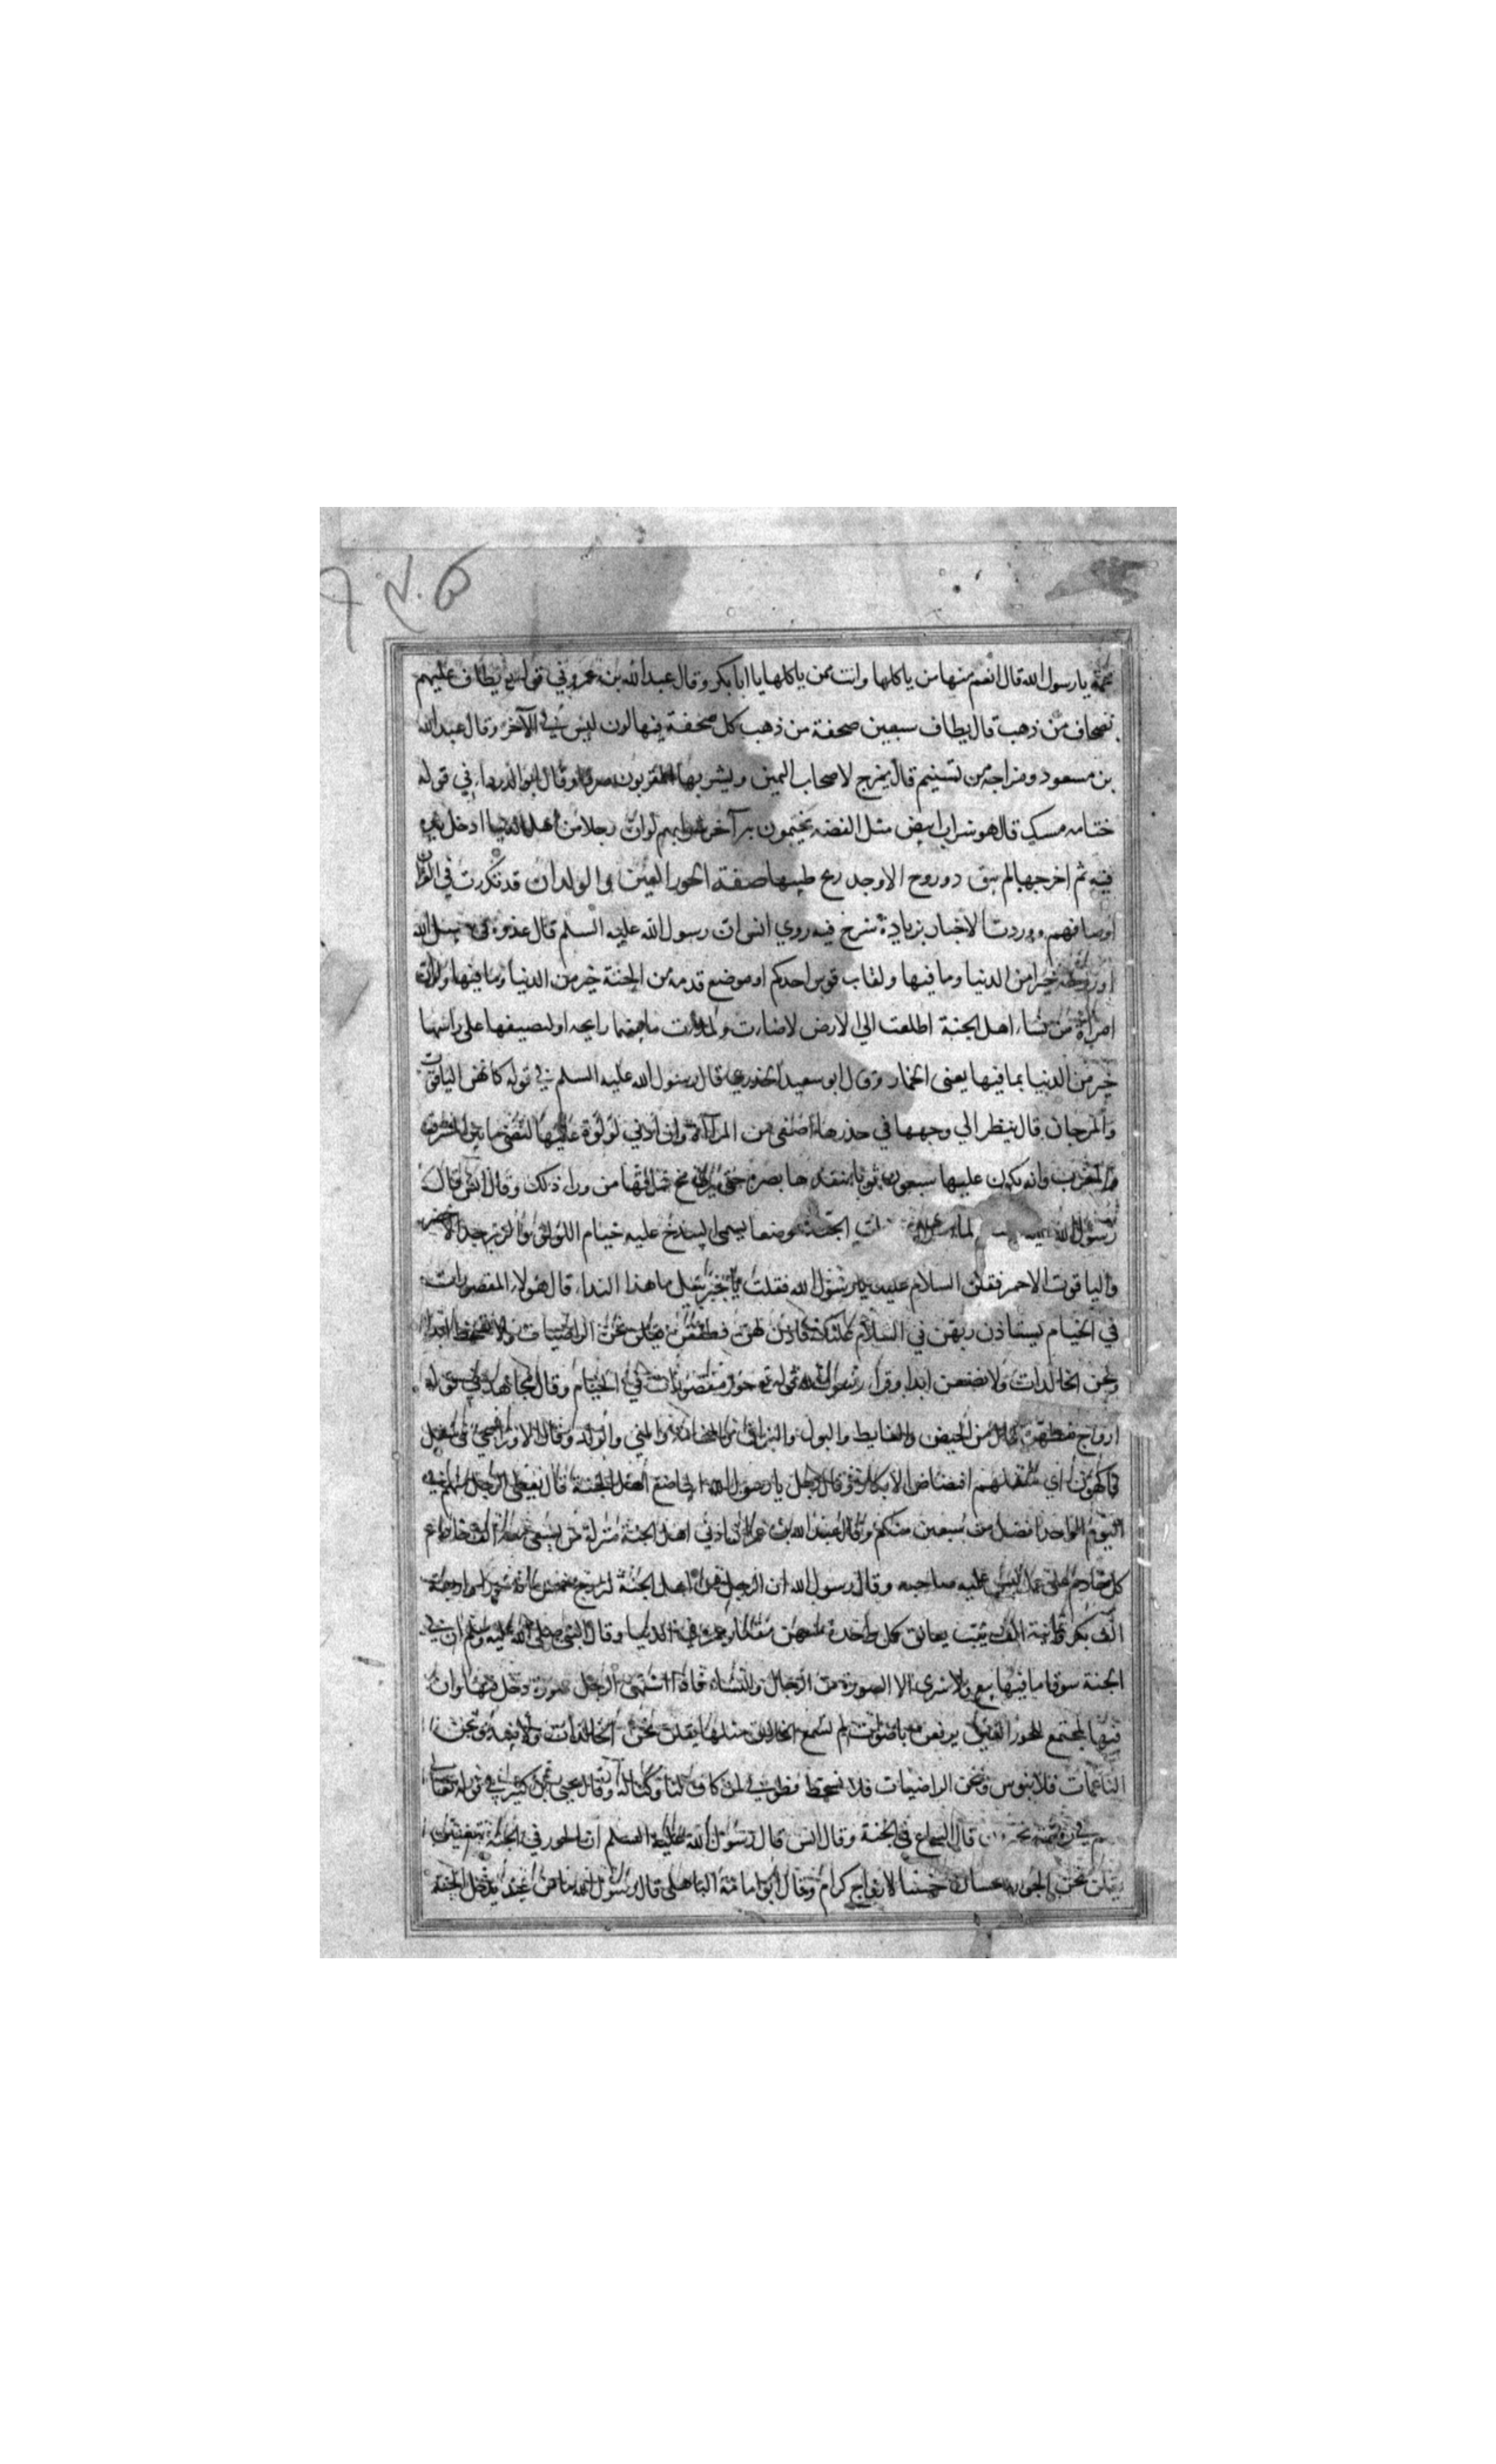 يارسول الله قال انعم منها من ياكلها وانت ممن ياكلها يا ابا بكر وقال عبد الله بن عمرو في قوله يطاف عليهم
بصحاف من ذهب قال يطاف سبعين صحفة من ذهب كل صحفة فيها لون ليس في الآخر وقال عبد الله
بن مسعود ومزاجه من تسنيم قال يمزج لاصحاب اليمين ويشربها المقربون صرفا وقال ابو الدرداء في قوله
ختامه مسك قال هو شراب ابيض مثل الفضة يختمون به آخر شرابهم لوان رجلا من اهل الدنيا ادخل يده
فيه ثم اخرجها لم يبق ذو روح الا وجد ريح طيبها صفة الحور العين والولدان قد تكررت في القرآن
اوصافهم ووردت الاخبار بزيادة شرح فيه روي انس ان رسول الله عليه السلم قال غدوة في سبيل الله
او روحة خير من الدنيا وما فيها ولقاب قوس احدكم او موضع قدمه من الجنة خير من الدنيا وما فيها ولوان
امراة من نساء اهل الجنة اطلعت الي الارض لاضاءت ولملأت ما بينهما رايحه ولنصيفها على راسها
خير من الدنيا بما فيها يعنى الخمار وقال ابو سعيد الخدري قال رسول الله عليه السلم في قوله كانهن الياقوت
والمرجان قال ينظر الي وجهها في خدرها اصفى من المرآة وان ادني لؤلؤة عليها لتضئ ما بين المشرق
والمغرب وانه يكون عليها سبعون ثوبا ينفدها بصره حتى يرى مخ ساقها من وراء ذلك وقال انس قال
رسول الله لما الجنة موضعا يسمى البيدخ عليه خيام اللؤلؤ والزبرجد الاخضر
والياقوت الاحمر فقلن السلام عليك يارسول الله فقلت يا جبريل ما هذا الندا قال هولاء المقصورات
في الخيام يستاذن ربهن في السلام عليك فاذن لهن فطفقن يقلن نحن الراضيات ولا نسخط ابدا
ونحن الخالدات ولا نضعن ابدا وقرا رسول الله قوله تع حور مقصورات في الخيام وقال مجاهد في قوله
ازواج مطهرة قال من الحيض والغايط والبول والبزاق والنخامة والمني والولد وقال الاوزاعي في شغل
فاكهون اي شغلهم افتضاض الابكار وقال رجل يا رسول الله ايباضع اهل الجنة قال يعطى الرجل منهم في
اليوم الواحد افضل من سبعين منكم وقال عبد الله بن عمر ان ادني اهل الجنة منزلة من يسعى معه الف خادم
كل خادم على عمل ليس عليه صاحبه وقال رسول الله ان الرجل من اهل الجنة ليزوج خمس مائة حورا واربعة
الف بكر وثمانية الف ثيب يعانق كل واحدة منهن مقدار عمره في الدنيا وقال النبي صلى الله عليه وسلم ان في
الجنة سوقا ما فيها بيع ولا شرى الا الصورة من الرجال والنساء فاذا اشتهى الرجل صورة دخل فيها وان
فيها لمجتمع الحور العين يرفعن باصوات لم تسمع الخلايق مثلها يقلن نحن الخالدات ولا نبيد ونحن
الناعمات فلا نبوس ونحن الراضيات فلا نسخط فطوبى لمن كان لنا وكنا له وقال يحيى بن كثير في قوله تعالى
في روضة يحبرون قال السماع في الجنة وقال انس قال رسول الله عليه السلم ان الحور في الجنة يتغنين
يقلن نحن الحور الحسان خبئنا لازواج كرام وقال ابو امامة الباهلي قال رسول الله ما من عبد يدخل الجنة